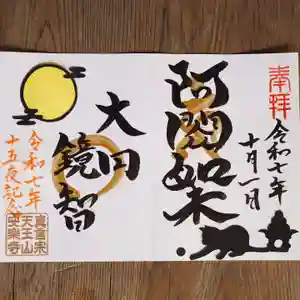 奉拝
令和七年
十月一日
阿閦如来
大円
鏡智
令和七年
十五夜記念
真言宗
天王山
安楽寺